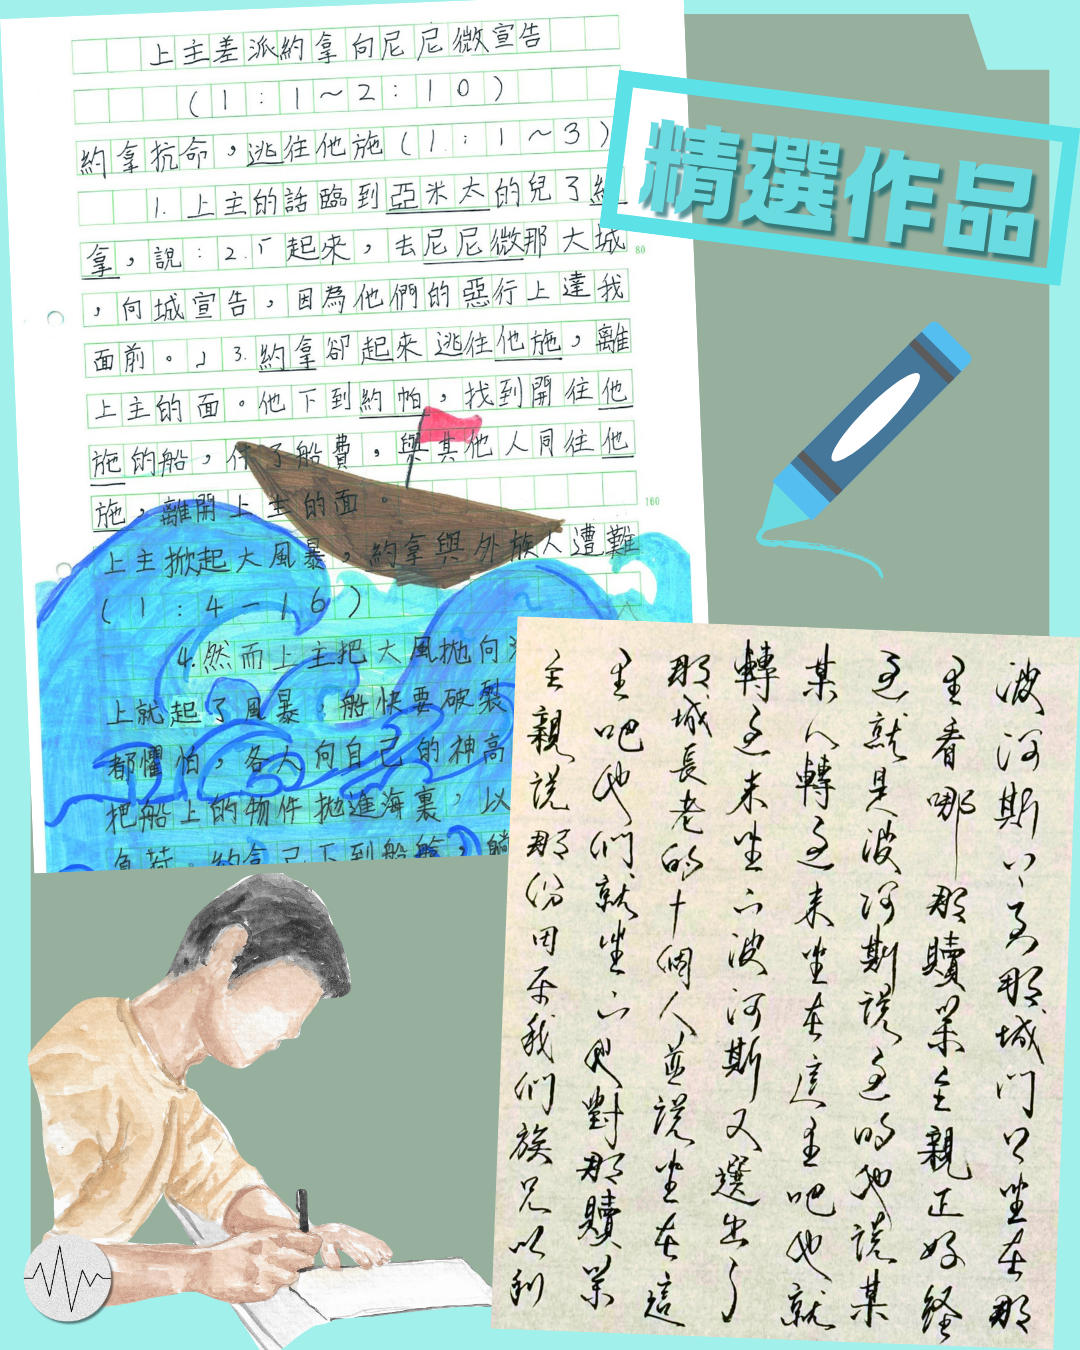 上主差派約拿向尼尼微宣告
(1:1～2:10)
約拿抗命，逃往他施(1:1～3)
1. 上主的話臨到亞米太的兒子約
拿，說：2.「起來，去尼尼微那大城
，向城宣告，因為他們的惡行上達我
面前。」3.約拿卻起來逃往他施，離
上主的面。他下到約帕，找到開往他
施的船，付了船費，與其他人同往他
施，離開上主的面。
上主掀起大風暴，約拿與外族人遭難
(1:4-16)
4.然而上主把大風拋向
上就起了風暴，船快要破裂
都懼怕，各人向自己的神高
把船上的物件拋進海裏，以
負荷。約拿已下到船艙，躺
80
160
精選作品
波河斯上那城門口坐在那
里看哪那贖業至親正好經
過就是波河斯說過的他說某
某人轉過來坐在這里吧他就
轉過來坐下波河斯又選出了
那城長老的十個人並說坐在這
里吧他們就坐下他對那贖業
至親說那份田我們族兄以利